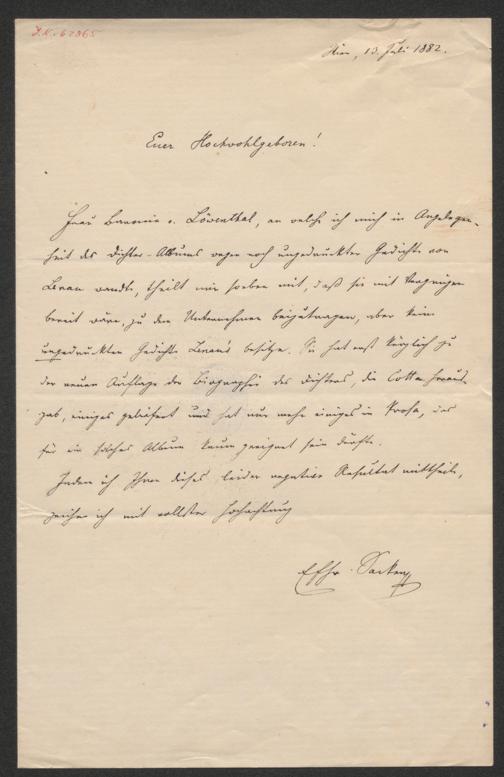 J.N. 62865
Wien, 13. Juli 1882.
Euer Hochwohlgeboren!
Frau Baronin v. Löwenthal, an welche ich mich in Angelegen-
heit des Dichter-Albums wegen noch ungedruckter Gedichte von
Lenau wandte, theilt mir soeben mit, daß sie mit Vergnügen
bereit wäre, zu dem Unternehmen beizutragen, aber keine
ungedruckten Gedichte Lenau's besitze. Sie hat erst kürzlich zu
der neuen Auflage der Biographie des Dichters, die Cotta heraus-
gab, einiges geliefert und hat nur mehr einiges in Prosa, das
für ein solches Album kaum geeignet sein dürfte.
Indem ich Ihnen dieses leider negative Resultat mittheile,
zeichne ich mit vollster Hochachtung
Sacken